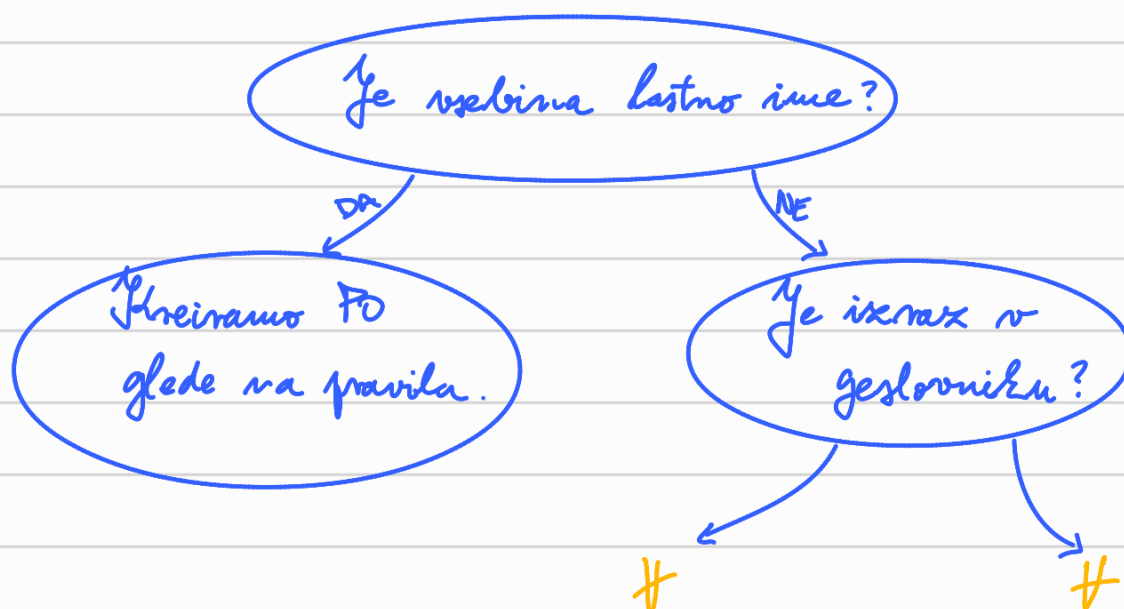 Je vsebina lastno ime?
DA
NE
Kreiramo FO
glede na pravila.
Je izraz v
geslovniku?